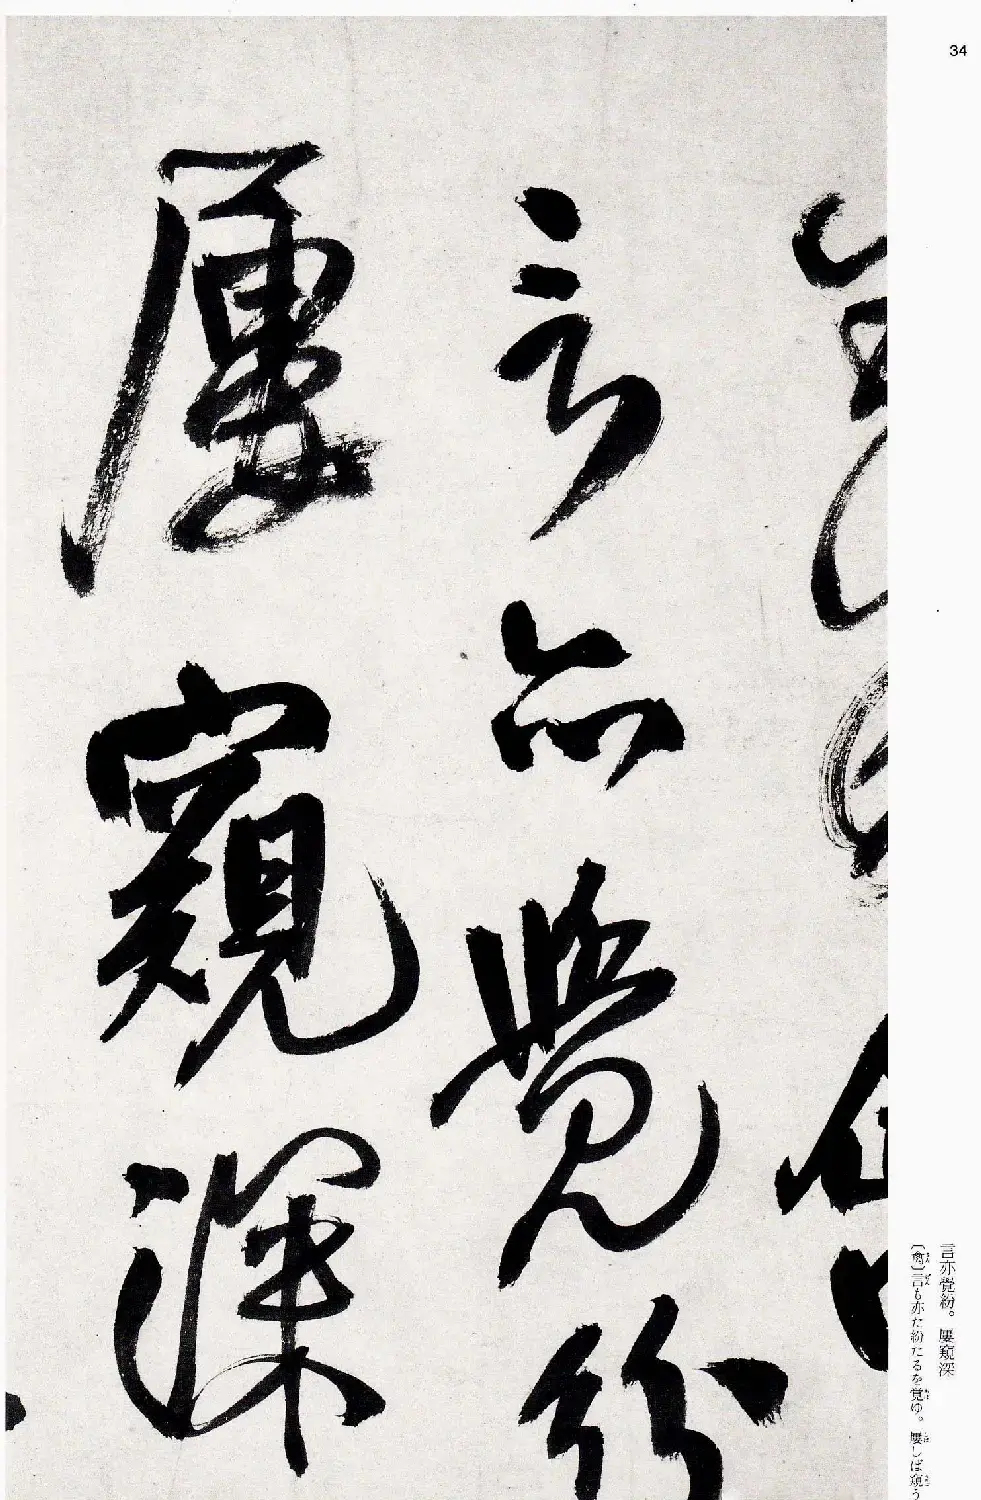 34
言亦覺紛
屢窺深
言亦覺紛。屢窺深
言も亦た紛たるを覚ゆ。屢しば窺う